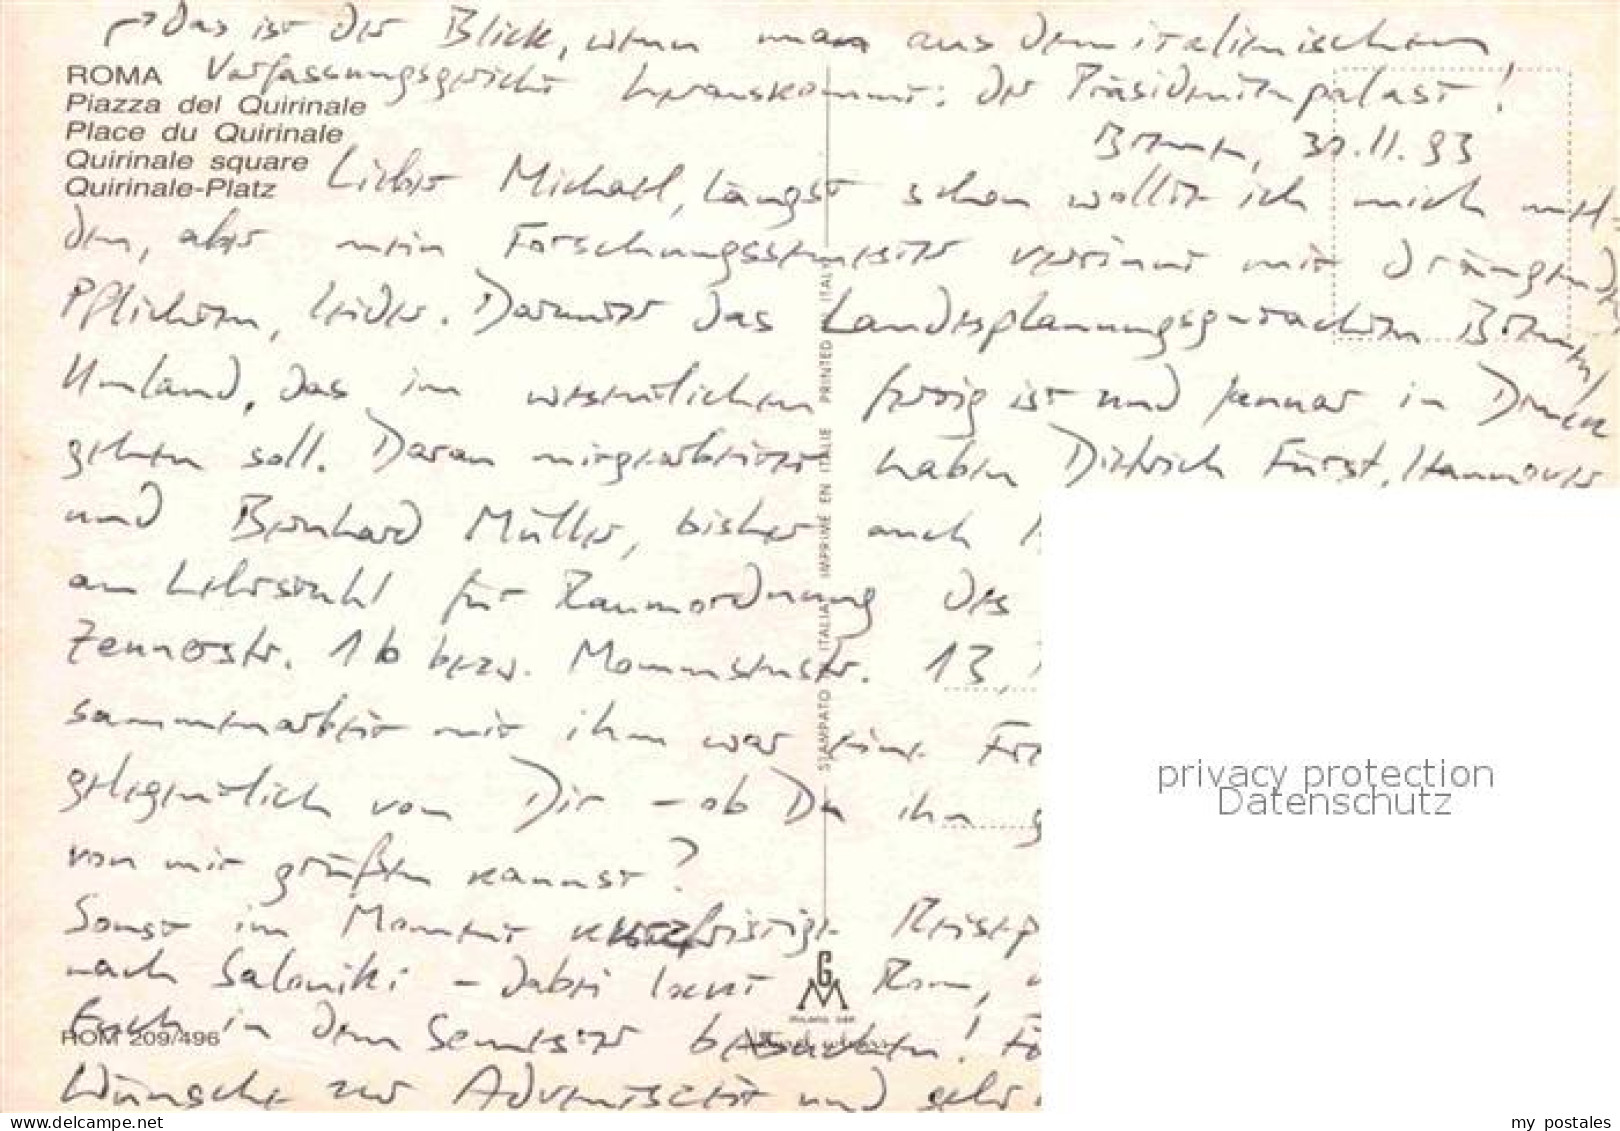 → Das ist der Blick, wenn man aus dem italienischen
Verfassungsgericht herauskommt: der Präsidentenpalast!
ROMA
Piazza del Quirinale
Place du Quirinale
Quirinale square
Quirinale-Platz
Bonn, 30.11.93
Lieber Michael, längst schon wollte ich mich mel-
den, aber mein Forschungssemester verrinnt mit drängenden
Pflichten, leider. Darunter das Landesplanungsgutachten
Umland, das im wesentlichen fertig ist und Januar in Druck
gehen soll. Daran mitgearbeitet haben Dietrich Fürst, Hannover
und Bernhard Müller, bisher auch
am Lehrstuhl für Raumordnung des
Zennerstr. 1b bzw. Mommsenstr. 13,
sammenarbeit mit ihm war eine
gelegentlich von Dir – ob Du ihn g
von mir grüßen kannst?
Sonst im Moment kurzfristige
nach Saloniki – dabei lockt Rom,
Euch in dem Semester besuchen!
Wünsche zur Adventszeit und sehr
STAMPATO IN ITALIA IMPRIME EN ITALIE PRINTED ITALY
GM
MILANO
ROM 209/496
privacy protection
Datenschutz
www.delcampe.net
my postales